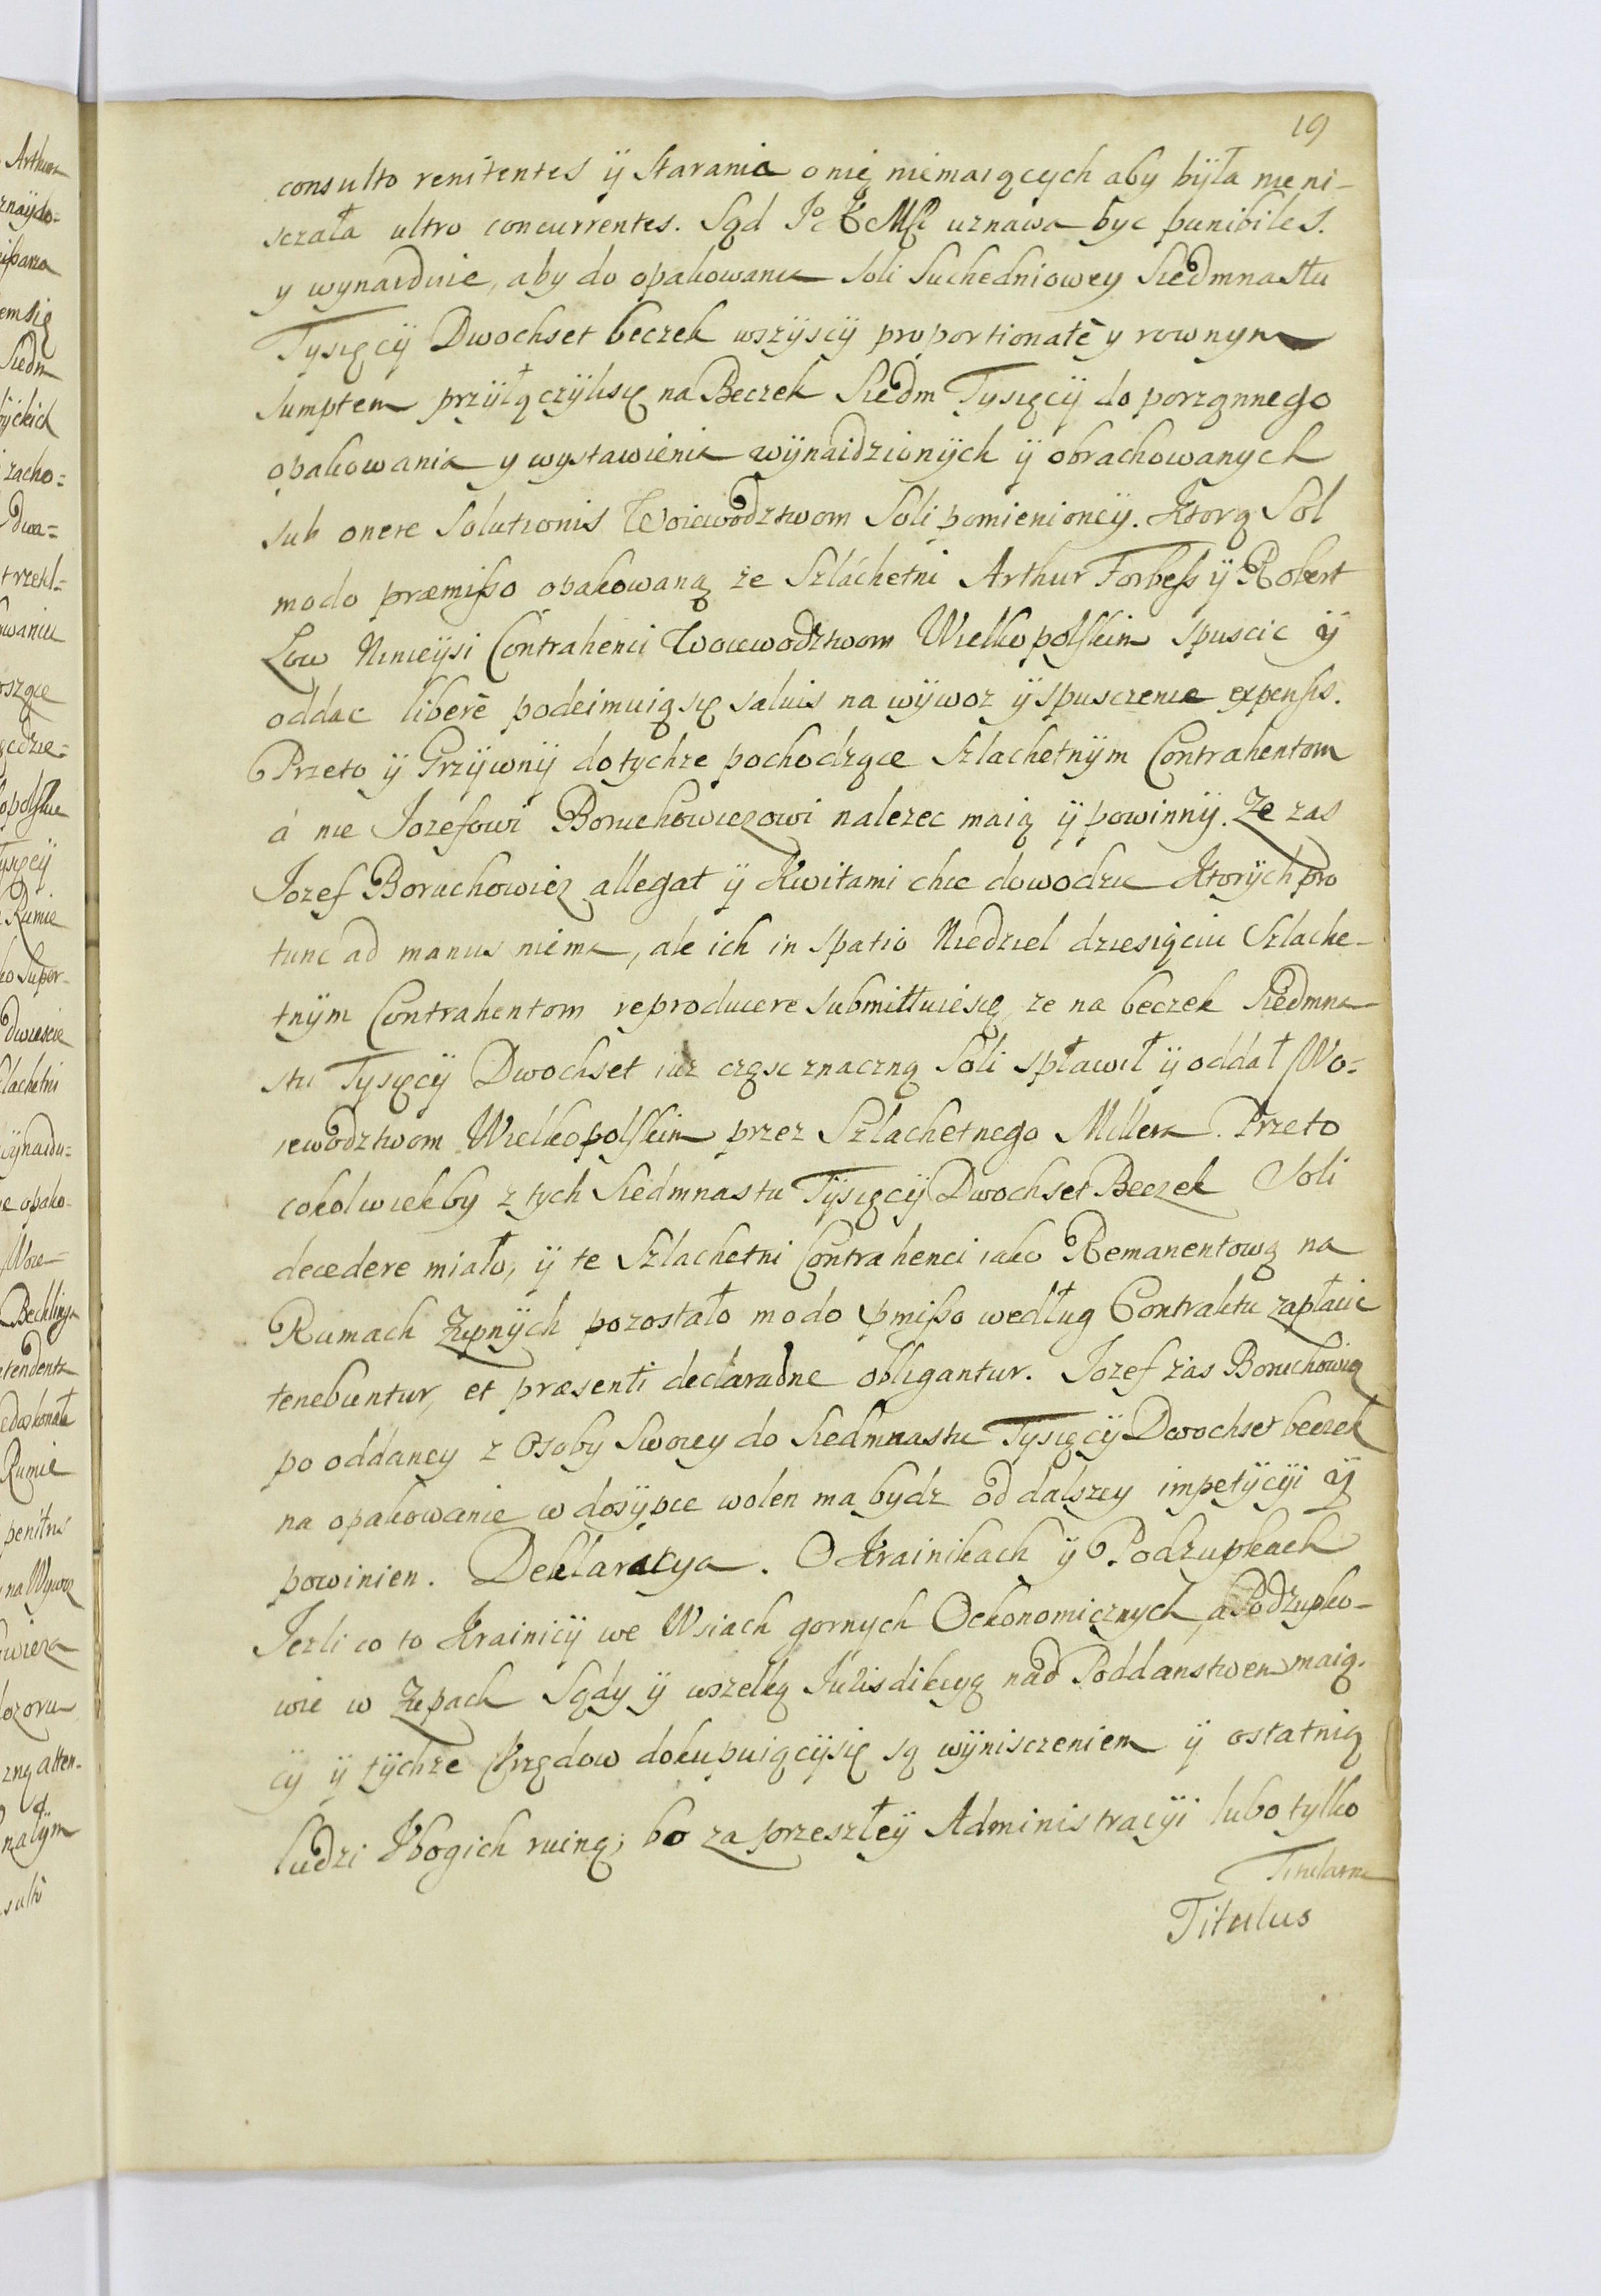 19
consulto renitentes ÿ starania o nię niemaiących aby bÿła nie ni-
sczała ultro concurrentes. Sąd Jº K Mſci uznawa byc punibiles.
y wynaiduie, aby do opakowania soli Suchedniowey siedmnastu
Tysięcÿ Dwochset beczek wszÿscÿ proportionatè y rownym
sumptem przÿłączÿlisię na Beczek Siedm Tysięcÿ do porządnego
opakowania y wystawienia wÿnaidzionÿch ÿ obrachowanych
sub onere solutionis Woiewodztwom Soli pomienionеÿ. Ktorą Sol
modo præmiſso opakowaną że Szláchetni Arthur Forbeſs ÿ Robert
Low Ninieÿsi Contrahenci Woiewodztwom Wielkopolſkim spuscic ÿ
oddac liberè podeimuiąsię salvis na wÿwoz ÿ spusczenie expensis.
Przeto ÿ Grzÿwnÿ do tychze pochodzące Szlachetnÿm Contrahentom
á nie Jozefowi Boruchowiczowi nalezec maią ÿ powinnÿ. Ze zas
Jozef Boruchowicz allegat ÿ Kwitami chce dowodzic Ktorÿch pro
tunc ad manus niema, ale ich in spatio Niedziel dziesięciu Szlache-
tnÿm Contrahentom reproducere submittuiesię, ze na beczek Siedmna-
stu Tysięcÿ Dwochset iuz częsc znaczną Soli spławił ÿ oddał Wo-
iewodztwom Wielkopolſkim przez Szlachetnego Millera. Przeto
cokolwiekby z tych Siedmnastu Tÿsięcÿ Dwochset Beczek Soli
decedere miało, ÿ te Szlachetni Contrahenci iako Remanentową na
Rumach Zupnÿch pozostało modo pmiſso według Contraktu zapłacic
tenebuntur, et præsenti declaraõne obligantur. Jozef zas Boruchowicz
po oddaney z Osobÿ Swoiey do Siedmnastu Tysięcÿ Dwochset beczek
na opakowanie w dosÿpce wolen ma bydz od dalszey impetÿcÿi ÿ
powinien. Deklaracya. O Krainikach ÿ Podzupkach
Jezli co to Krainicÿ we Wsiach gornych Oekonomicznych, a Podzupko-
wie w Zupach Sądy ÿ wszelką Jurisdikcyą nad Poddanstwem maią-
cÿ ÿ tÿchze Urzędow dokupuiącÿsię są wÿnisczeniem ÿ ostatnią
ludzi Ubogich ruiną; bo za przeszłеÿ Administracÿi lubo tylko
Titularne
Titulus